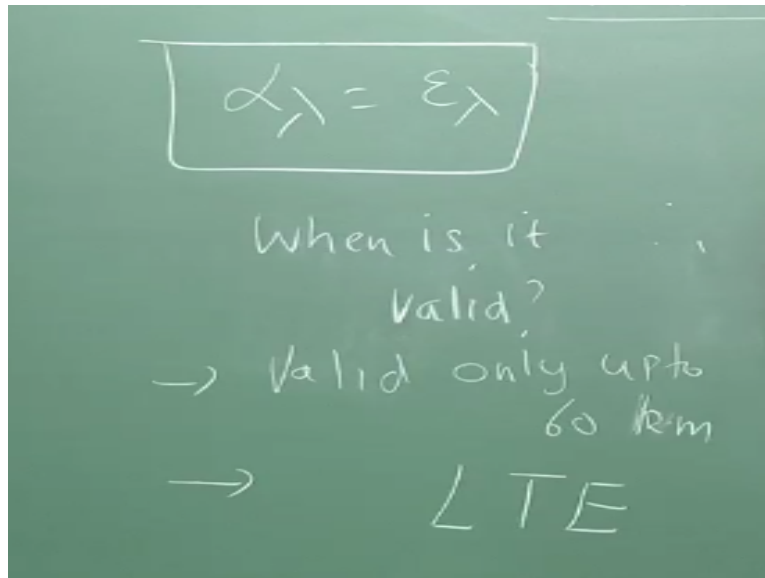 αλ = ελ
When is it
valid?
→ Valid only upto
60 km
→ LTE